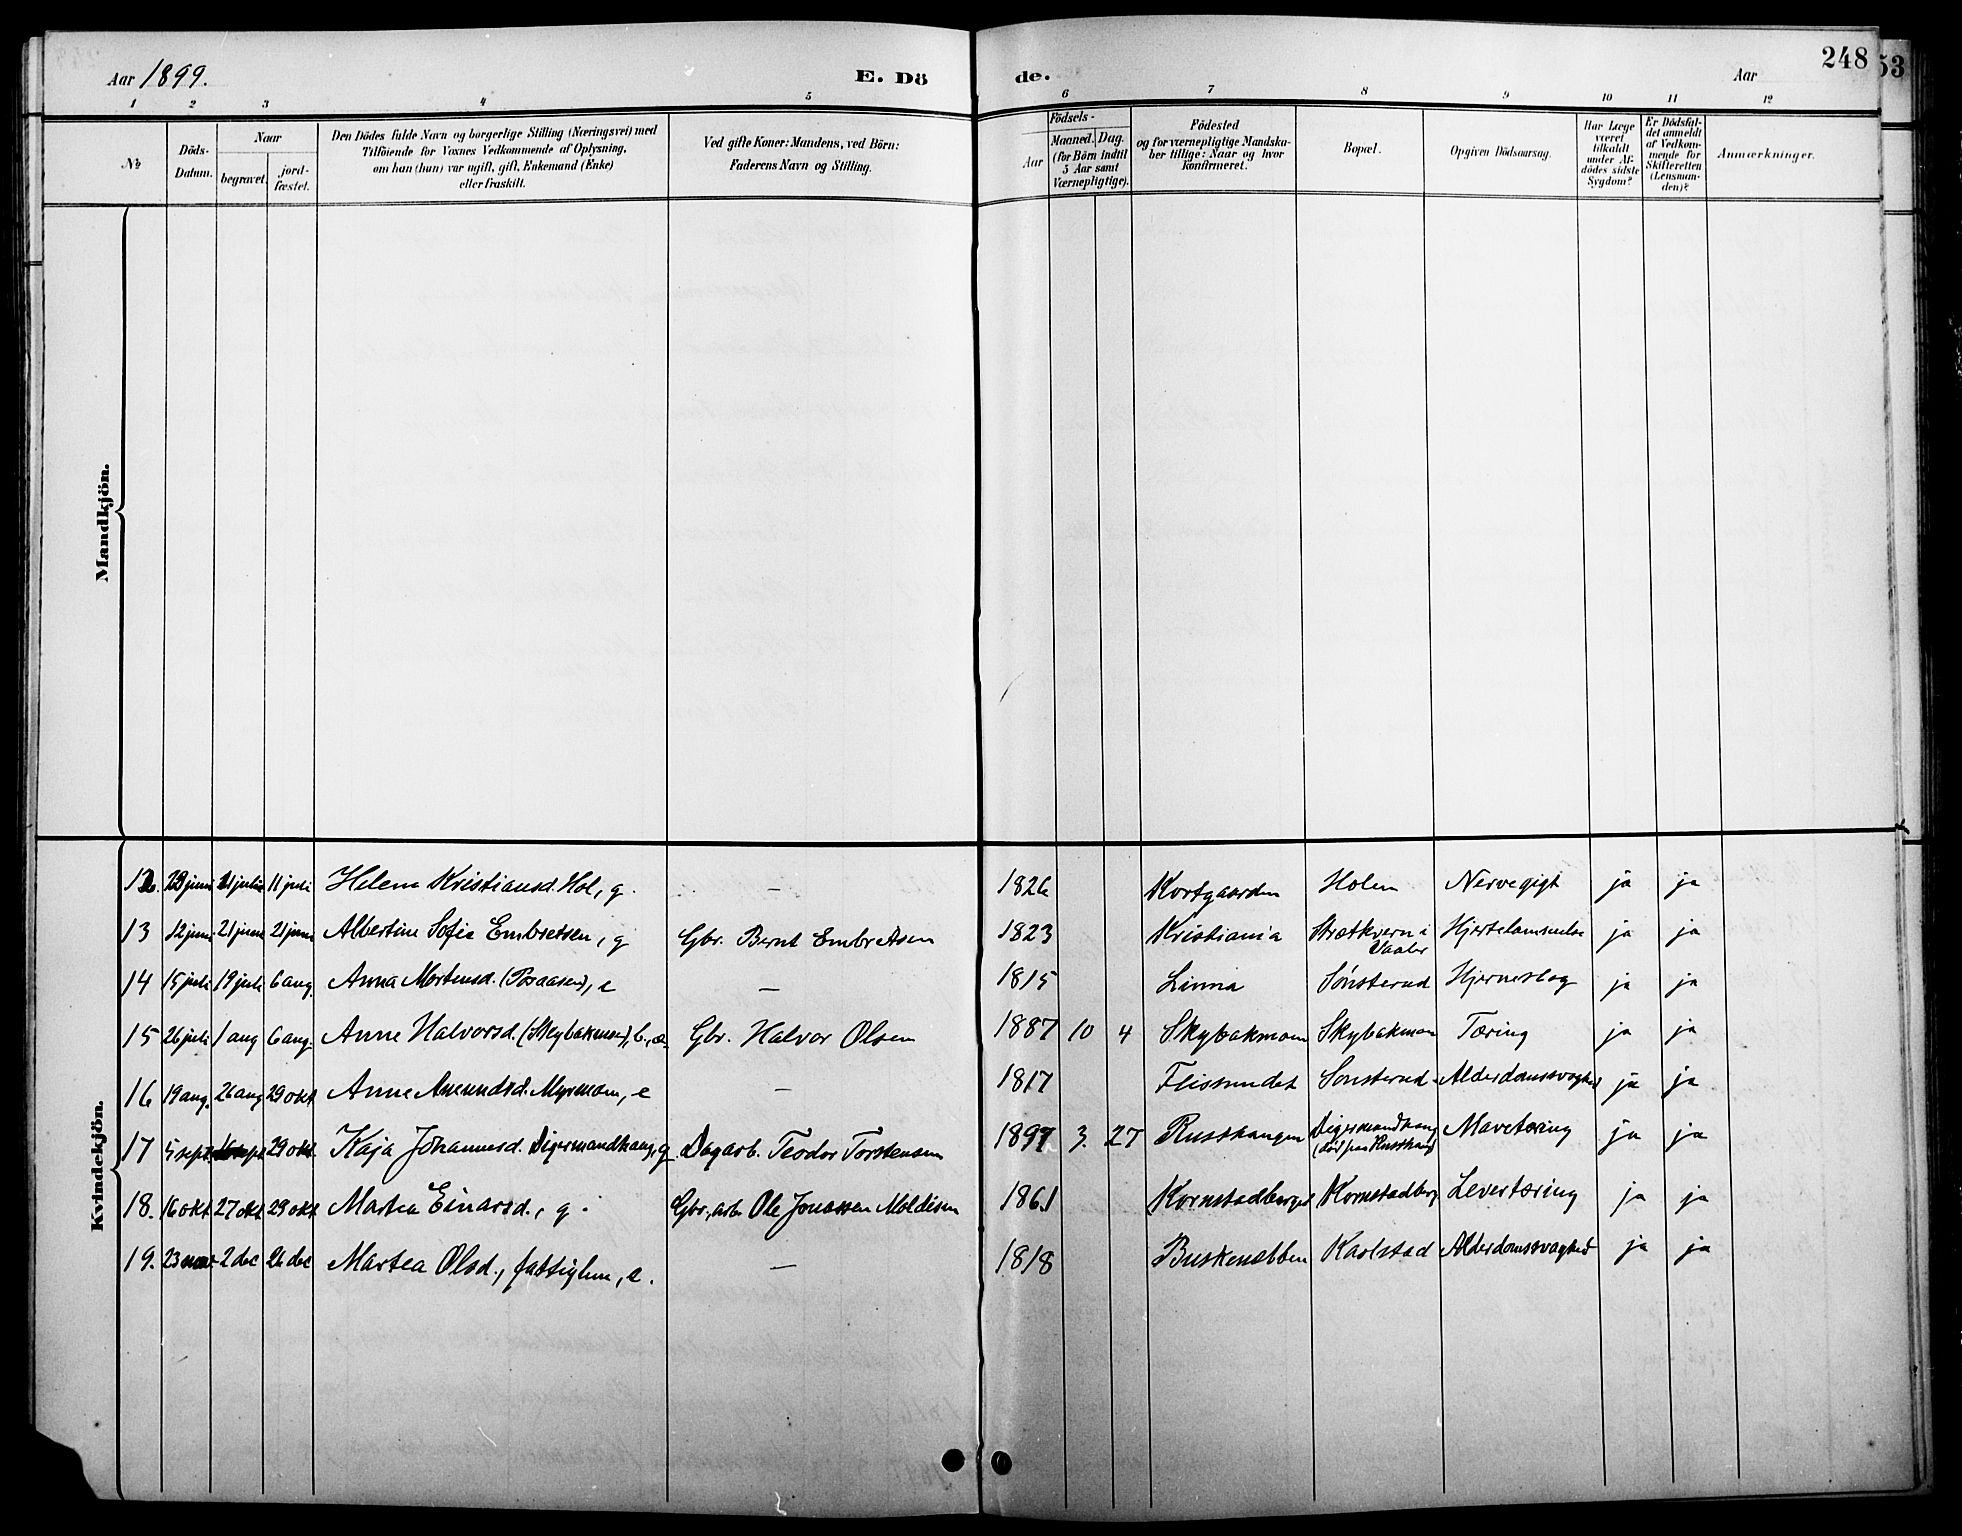 Aar 1899. E. Dö de. Aar 248
53
1 2 3 4 5 6 7 8 9 10 11 12
№
Döds-
Datum.
Naar
begravet.
jord-
fæstet.
Den Dödes fulde Navn og borgerlige Stilling (Næringsvei) med
Tilföiende for Voxnes Vedkommende af Oplysning,
om han (hun) var ugift, gift, Enkemand (Enke)
eller fraskilt.
Ved gifte Koner: Mandens, ved Börn:
Faderens Navn og Stilling.
Födsels-
Aar
Maaned. Dag.
(for Börn indtil
5 Aar samt
Værnepligtige).
Födested
og for værnepligtige Mandska-
ber tillige: Naar og hvor
konfirmeret.
Bopæl.
Opgiven Dödsaarsag.
Har Læge
været
tilkaldt
under Af-
dödes sidste
Sygdom?
Er Dödsfal-
det anmeldt
af Vedkom-
mende for
Skifteretten
(Lensman-
den)?
Anmærkninger.
Mandkjön.
Kvindekjön.
12. juni juli 11 juli Helene Kristiansd. Hol, g. — 1826 Kortgaarden Holen Nervegigt ja ja
13 12 juni 21 juni 21 juni Albertine Sofie Embretsen, g Gbr. Bernt Embretsen 1823 Kristiania Strætkvern i Hjertelammelse ja ja
Vaaler
14 15 juli 19 juli 6 aug. Anna Mortensd. (Baasen), e — 1815 Linna Sønsterud Hjerneslag ja ja
15 26 juli 1 aug 6 aug. Anne Halvorsd. (Skybakmoen), b., æ. Gbr. Halvor Olsen 1887 10 4 Skybakmoen Skybakmoen Tæring ja ja
16 19 aug. 26 aug 29 okt Anne Amundsd. Myrmoen, e — 1817 Flissundet Sønsterud Alderdomssvaghed ja ja
17 5 sept. 29 okt. Kaja Johannesd. Digermandhaug, g Dagarb. Teodor Torstensen 1897 3. 27 Russhaugen Digermandhaug Mavetæring ja ja
18. 16 okt 27 okt 29 okt Martea Einarsd., g. Gbr., arb. Ole Jonassen Moldisen 1861 Kornstadberget Kornstadberg Levertæring ja ja
19. 23 nov 2 dec 26 dec Martea Olsd., fattiglem, e. — 1818 Buskenæbben Karlstad Alderdomssvaghed ja ja